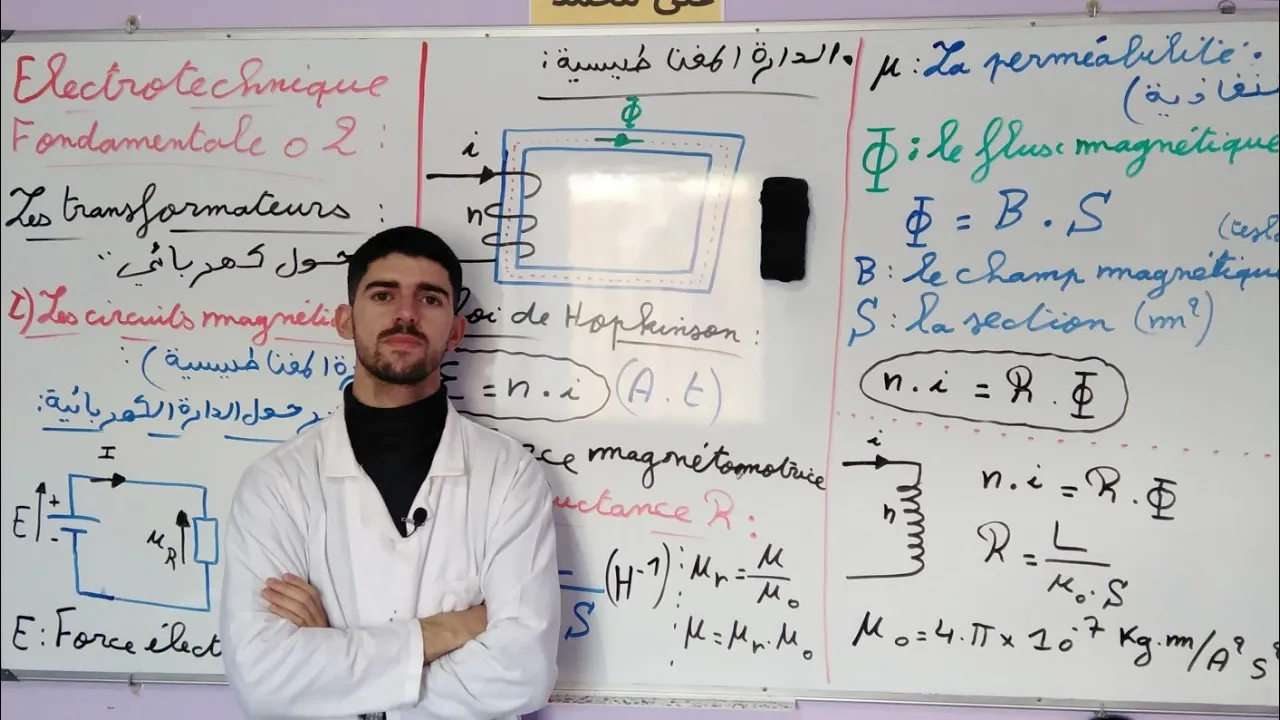 Electrotechnique
Fondamentale 02 :
Les transformateurs :
حول كهربائي :
I) Les circuits magnéti
رة المغناطيسية )
حول الدارة الكهربائية :
I
E
+
-
u_R
E : Force élect
الدارة المغناطيسية :
Φ
i
n
loi de Hopkinson :
Ɛ = n . i (A.t)
rce magnétomotrice
uctance R :
S (H⁻¹)
μr = μ / μ₀
μ = μr . μ₀
μ : La perméabilité .
نفاذية )
Φ : le flux magnétique
Φ = B . S
B : le champ magnétique
S : la section (m²)
n . i = R . Φ
i
n
n . i = R . Φ
R = L / μ₀ . S
μ₀ = 4 . π × 10⁻⁷ Kg.m/A² S²